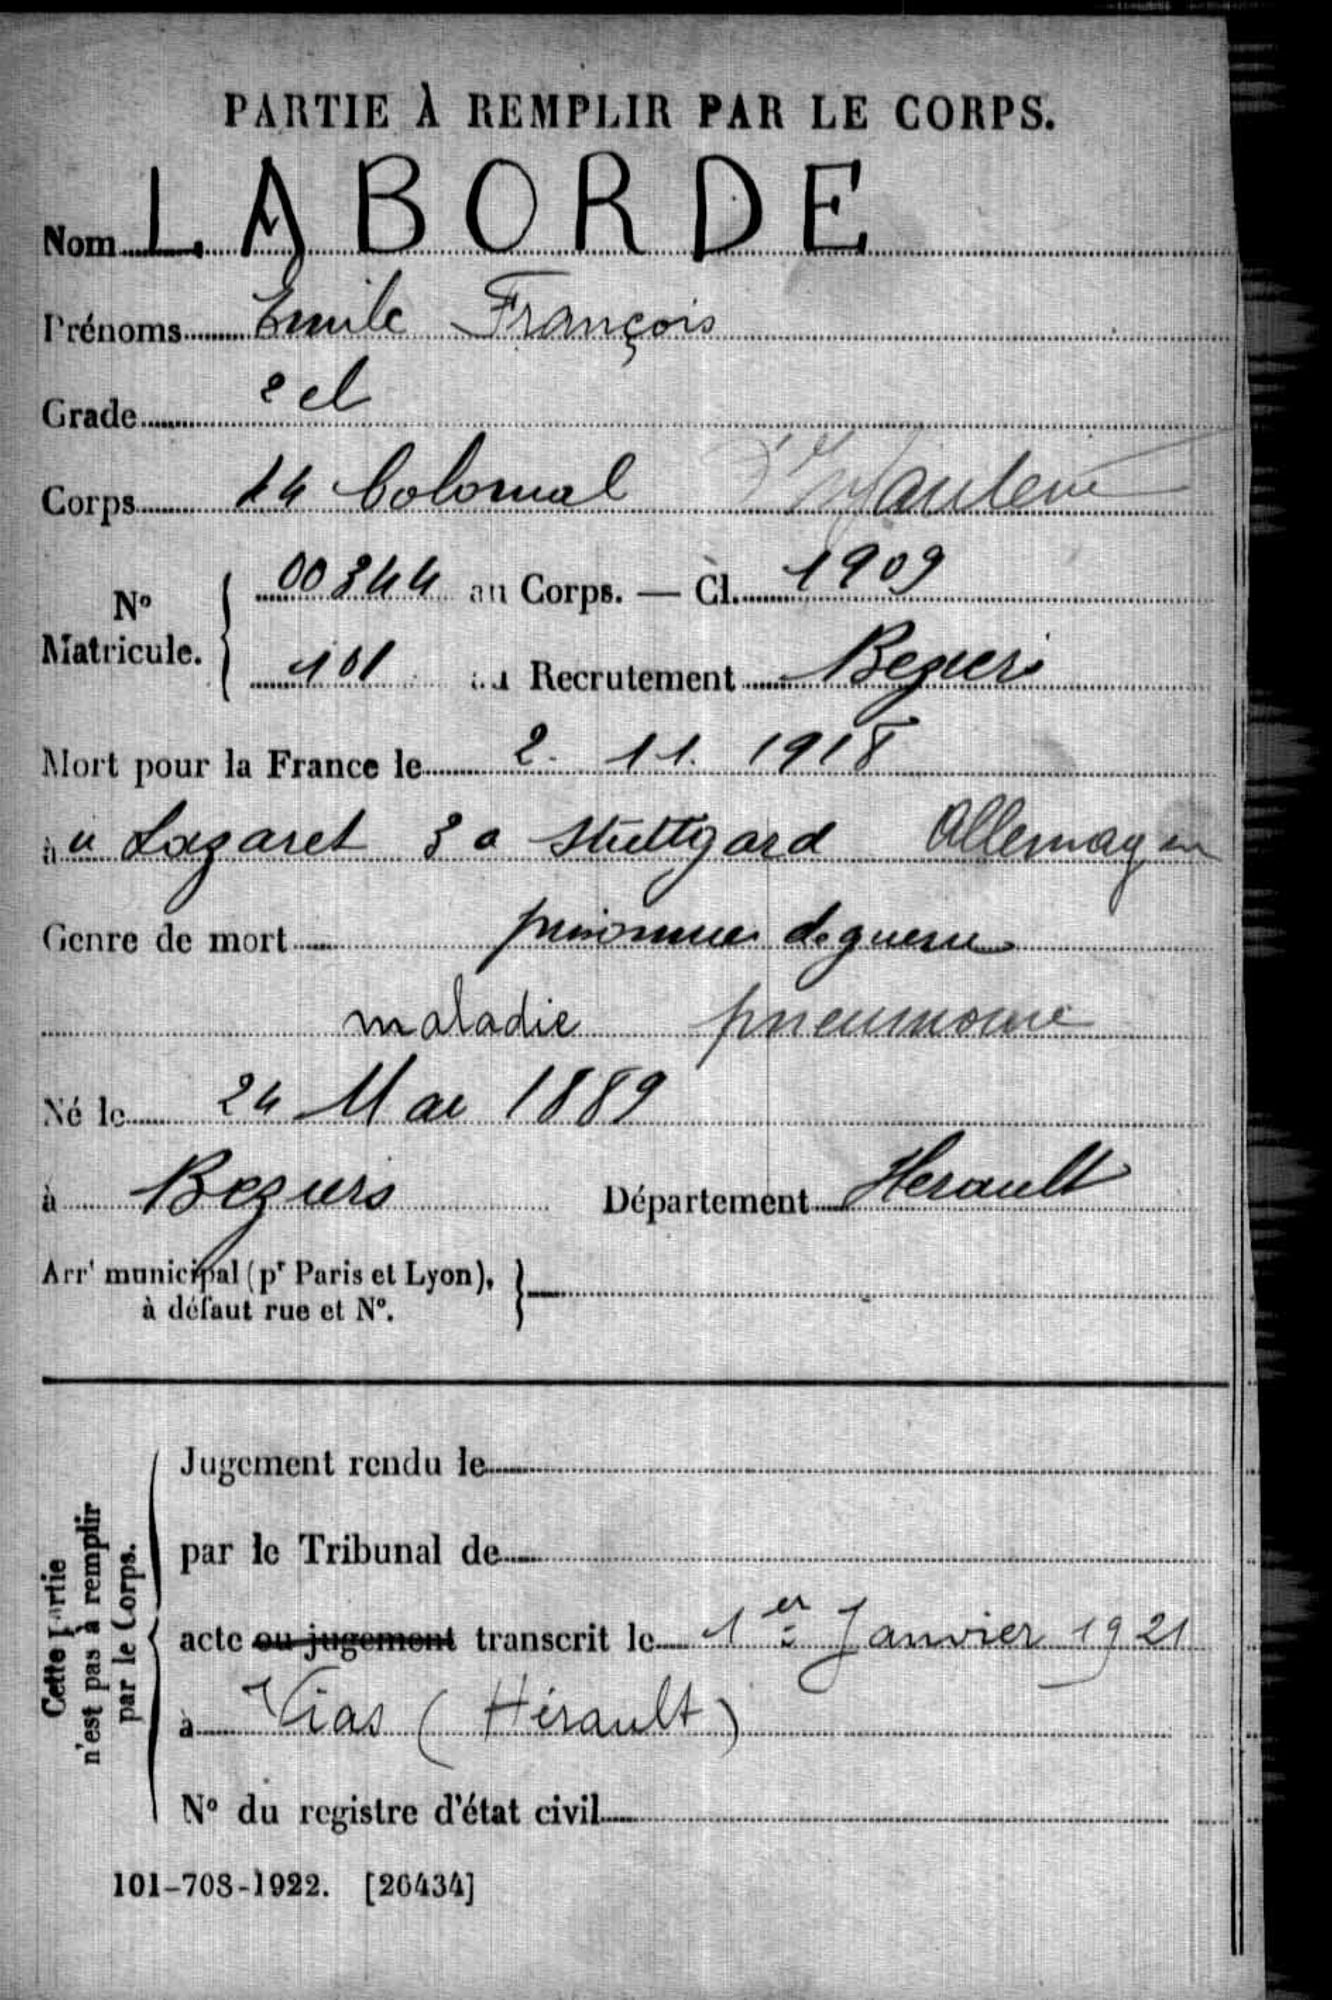 PARTIE À REMPLIR PAR LE CORPS.
Nom LABORDE
Prénoms Emile François
Grade 2 cl
Corps 24 Colonial d'Infanterie
N° Matricule. 00344 au Corps. — Cl. 1909
101 au Recrutement Beziers
Mort pour la France le 2. 11. 1918
au Lazaret 3 a Stuttgard Allemagne
Genre de mort prisonnier de guerre
maladie pneumonie
Né le 24 Mai 1889
à Beziers Département Herault
Arrᵗ municipal (pʳ Paris et Lyon),
à défaut rue et N°.
Cette partie
n'est pas à remplir
par le Corps.
Jugement rendu le
par le Tribunal de
acte ou jugement transcrit le 1er Janvier 1921
à Vias (Hérault)
N° du registre d'état civil
101-708-1922. [26434]